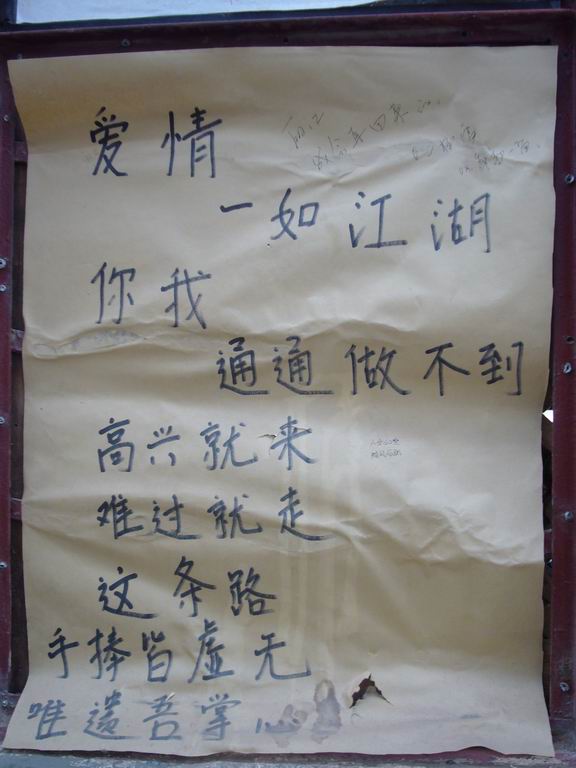 爱情
一如江湖
你我
通通做不到
高兴就来
难过就走
这条路
手捧皆虚无
唯遗吾掌心